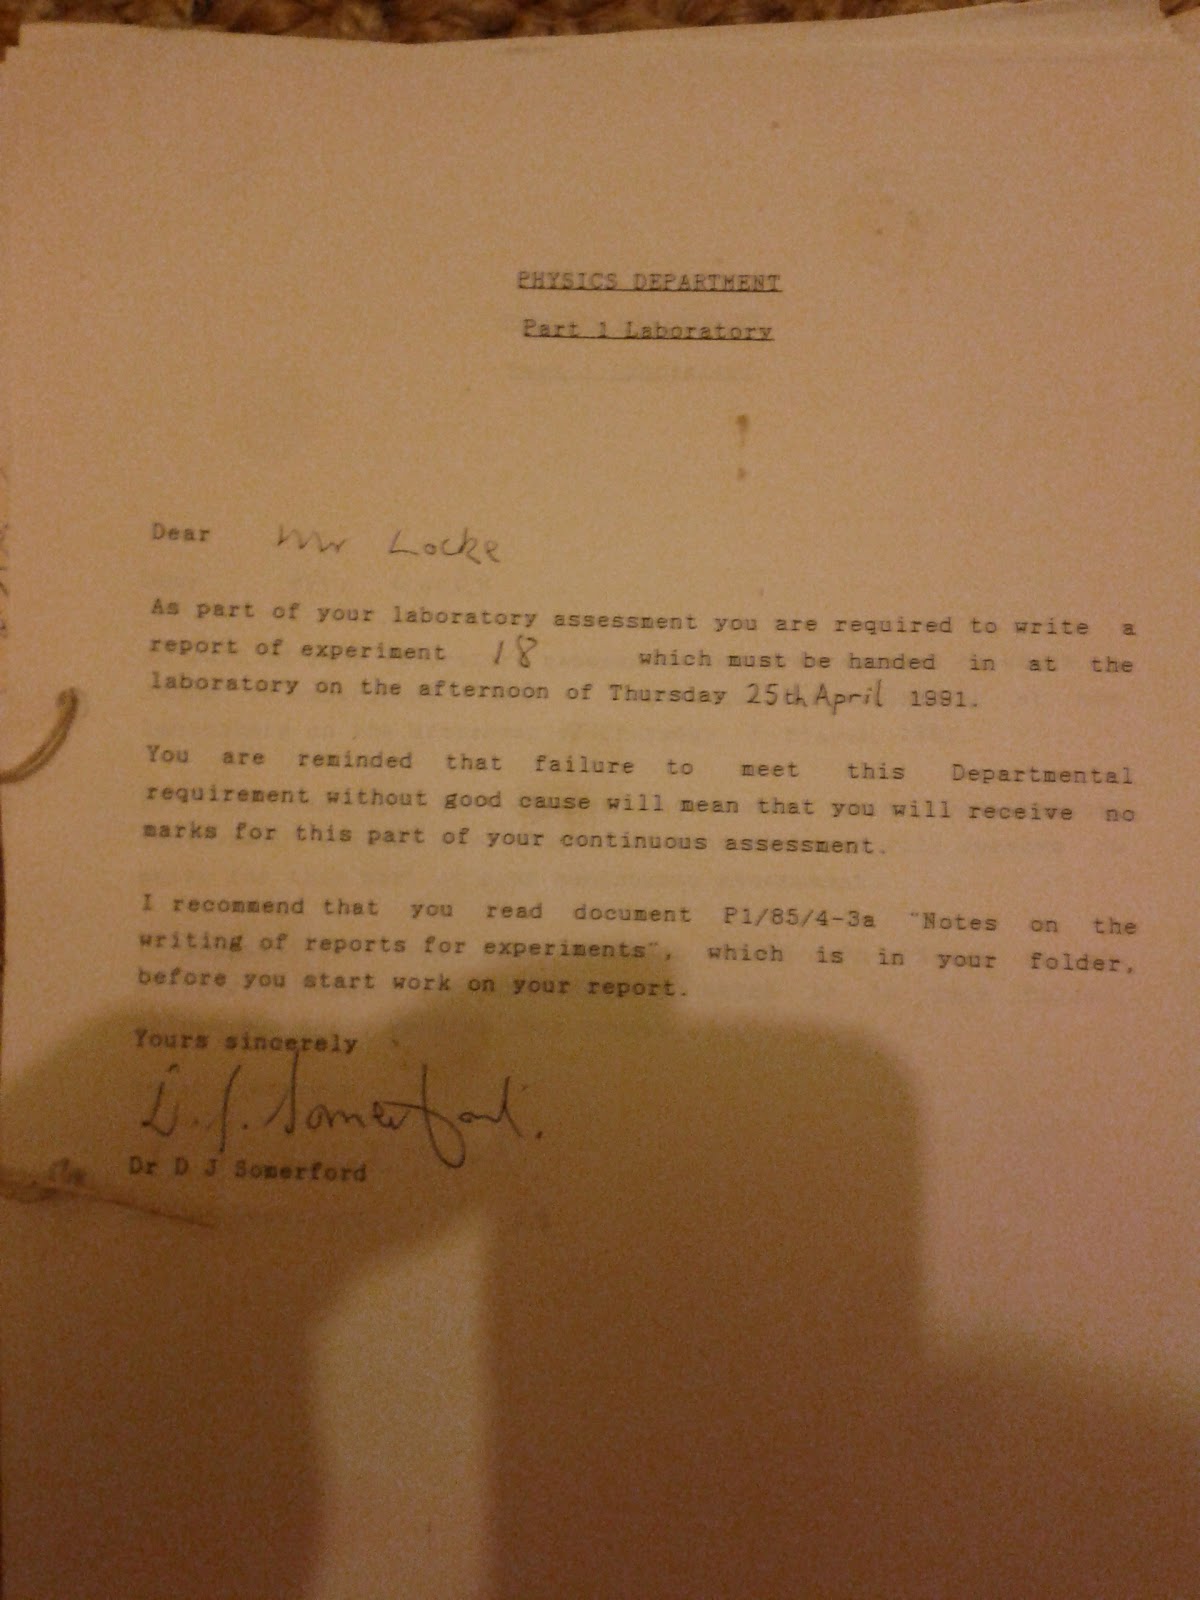 PHYSICS DEPARTMENT
Part 1 Laboratory
Dear Mr Locke
As part of your laboratory assessment you are required to write a
report of experiment 18 which must be handed in at the
laboratory on the afternoon of Thursday 25th April 1991.
You are reminded that failure to meet this Departmental
requirement without good cause will mean that you will receive no
marks for this part of your continuous assessment.
I recommend that you read document P1/85/4-3a "Notes on the
writing of reports for experiments", which is in your folder,
before you start work on your report.
Yours sincerely
D. J. Somerford.
Dr D J Somerford